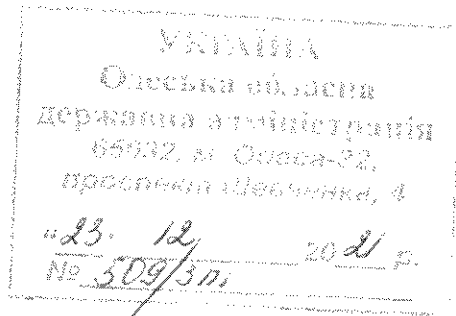 УКРАЇНА
Одеська обласна
державна адміністрація
65032, м. Одеса-32,
проспект Шевченка, 4
"23" 12 2021 р.
№ 509/Зп